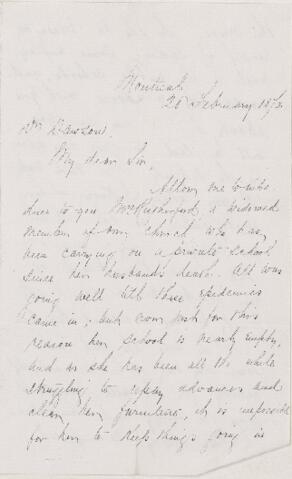 Montreal
26 February 187
Dr. Dawson.
My dear Sir,
Allow me to intro
duce to you Mrs Rutherford, a widowed
member of our Church who has
been carrying on a private school
since her husband's death. All was
going well till these epidemics
came in; but now just for this
reason her school is nearly empty,
And as she has been all the while
struggling to repay advances and
clear her furniture, it is impossible
for her to keep things going in